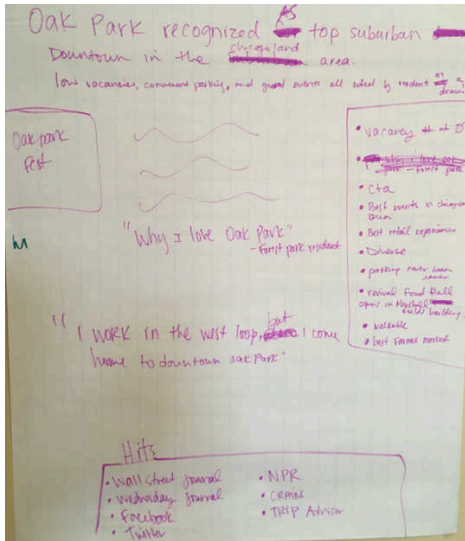 Oak Park recognized AS top suburban
Downtown in the chicagoland area.
low vacancies, convenient parking, and great events all cited by resident as a
Oak park
fest
"Why I love Oak Park"
- Forest park resident
"I work in the west loop, but I come
home to downtown oak Park"
• Vacancy # at 0
• CTA
• Best events in chicago
area
• Best retail experiences
• Diverse
• parking never been
easier
• revival Food Hall
opens in Marshall
Field building
• walkable
• best farmers market
Hits
• Wall Street Journal
• Wednesday Journal
• Facebook
• Twitter
• NPR
• CRAINS
• TRIP Advisor